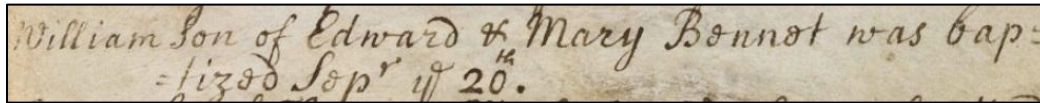 William Son of Edward & Mary Bennet was bap=
=tized Sepr ye 20th.